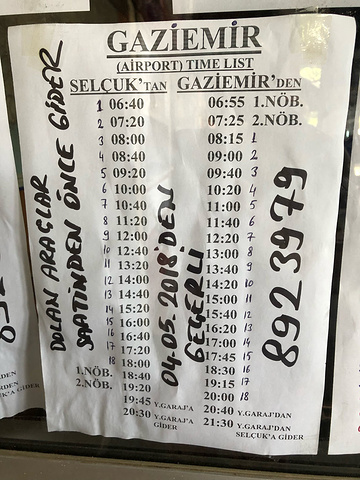 GAZİEMİR
(AİRPORT) TIME LIST
SELÇUK'TAN GAZİEMİR'DEN
1 06:40 06:55 1.NÖB.
2 07:20 07:25 2.NÖB.
3 08:00 08:15 1
4 08:40 09:00 2
5 09:20 09:40 3
6 10:00 10:20 4
7 10:40 11:00 5
8 11:20 11:40 6
9 12:00 12:20 7
10 12:40 13:00 8
11 13:20 13:40 9
12 14:00 14:20 10
13 14:40 15:00 11
14 15:20 15:40 12
15 16:00 16:20 13
16 16:40 17:00 14
17 17:20 17:45 15
18 18:00 18:30 16
1.NÖB. 18:40 19:15 17
2.NÖB. 19:20 20:00 18
19:45 Y.GARAJ'A 20:40 Y.GARAJ'DAN
20:30 Y.GARAJ'A GİDER 21:30 Y.GARAJ'DAN
SELÇUK'A GİDER
DOLAN ARAÇLAR
SAATİNDEN ÖNCE GİDER
04.05.2018'DEN
GEÇERLİ
8923979